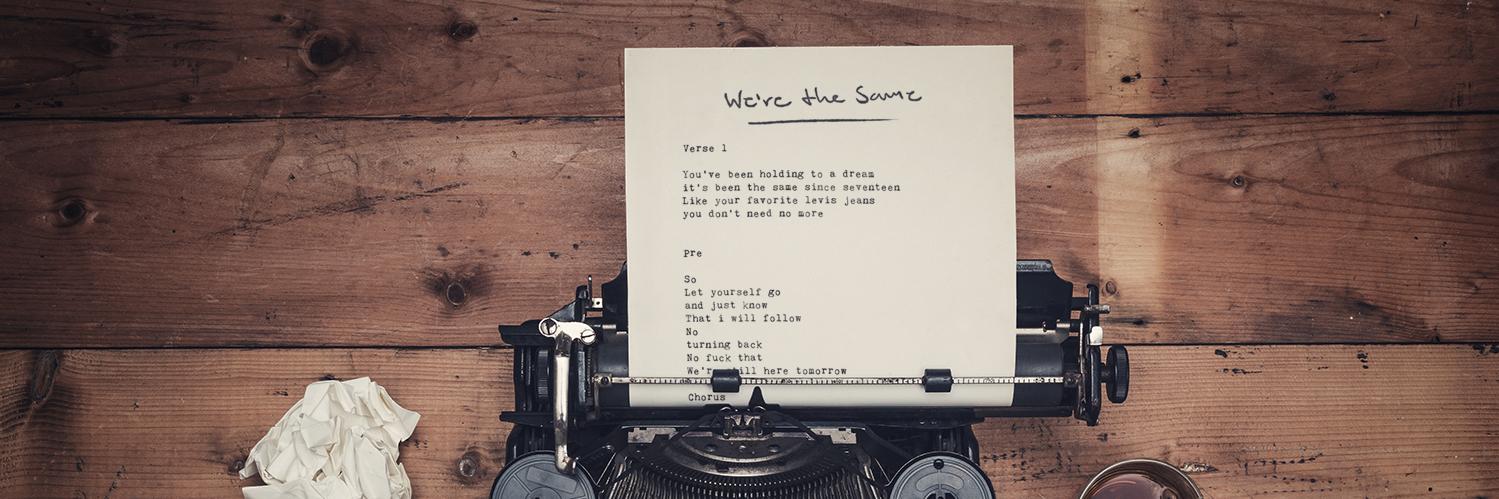 We're the Same
Verse 1
You've been holding to a dream
it's been the same since seventeen
Like your favorite levis jeans
you don't need no more
Pre
So
Let yourself go
and just know
That i will follow
No
turning back
No fuck that
We're still here tomorrow
Chorus